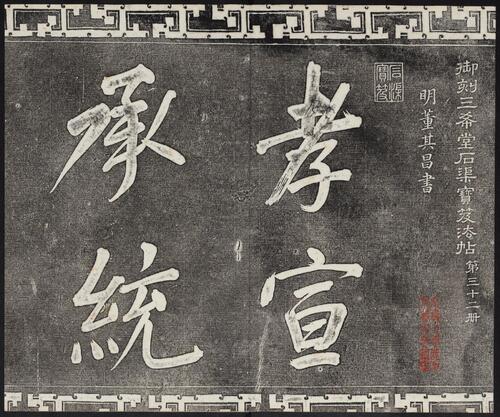 御刻三希堂石渠寶笈法帖第三十二册
明董其昌書
石渠寶笈
孝宣
承統